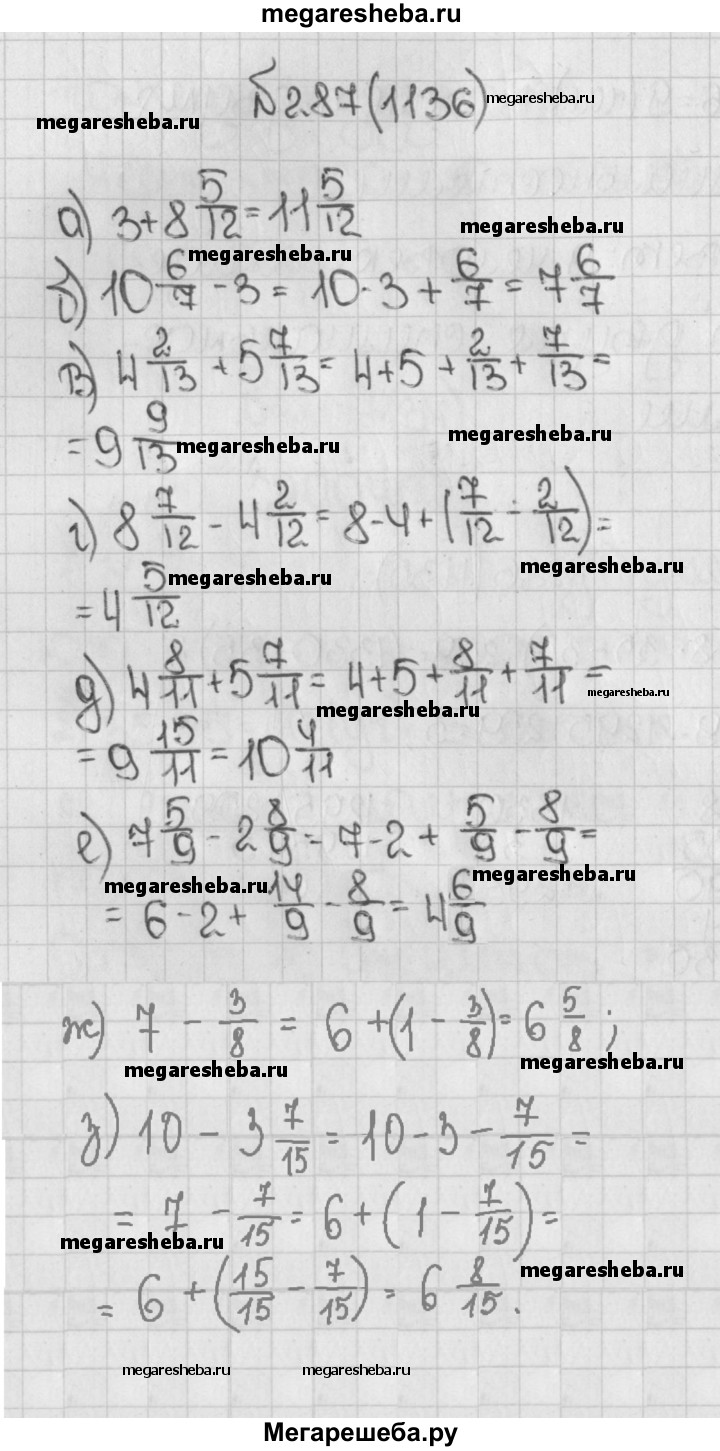 megaresheba.ru
№2.87(1136) megaresheba.ru
megaresheba.ru
а) 3 + 8 5/12 = 11 5/12
megaresheba.ru
megaresheba.ru
б) 10 6/7 - 3 = 10 - 3 + 6/7 = 7 6/7
в) 4 2/13 + 5 7/13 = 4 + 5 + 2/13 + 7/13 =
= 9 9/13
megaresheba.ru megaresheba.ru
г) 8 7/12 - 4 2/12 = 8 - 4 + (7/12 - 2/12) =
megaresheba.ru megaresheba.ru
= 4 5/12
д) 4 8/11 + 5 7/11 = 4 + 5 + 8/11 + 7/11 =
megaresheba.ru megaresheba.ru
= 9 15/11 = 10 4/11
е) 7 5/9 - 2 8/9 = 7 - 2 + 5/9 - 8/9 =
megaresheba.ru megaresheba.ru
= 6 - 2 + 14/9 - 8/9 = 4 6/9
ж) 7 - 3/8 = 6 + (1 - 3/8) = 6 5/8 ;
megaresheba.ru megaresheba.ru
з) 10 - 3 7/15 = 10 - 3 - 7/15 =
= 7 - 7/15 = 6 + (1 - 7/15) =
megaresheba.ru megaresheba.ru
= 6 + (15/15 - 7/15) = 6 8/15 .
megaresheba.ru megaresheba.ru
Мегарешеба.ру